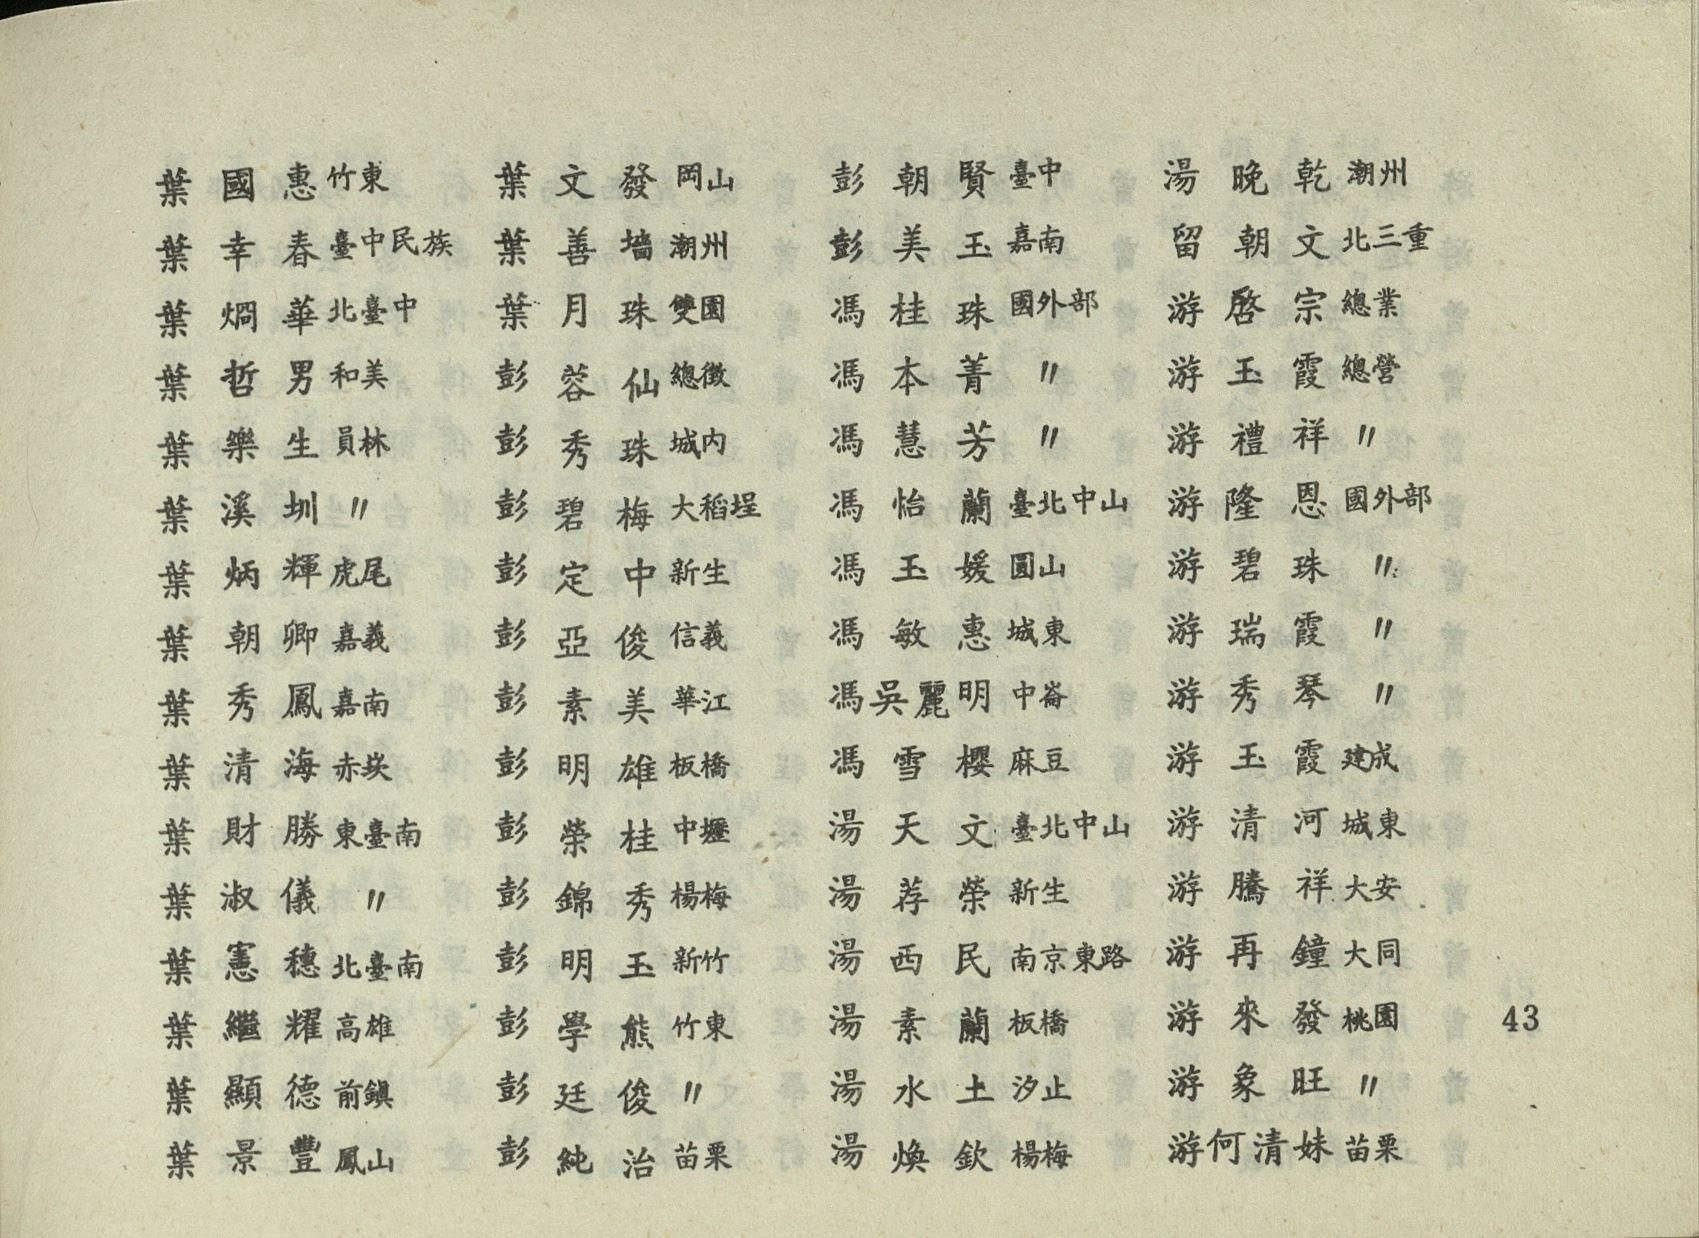 葉國惠 竹東
葉幸春 臺中民族
葉烱華 北臺中
葉哲男 和美
葉樂生 員林
葉溪圳 〃
葉炳輝 虎尾
葉朝卿 嘉義
葉秀鳳 嘉南
葉清海 赤崁
葉財勝 東臺南
葉淑儀 〃
葉憲穗 北臺南
葉繼耀 高雄
葉顯德 前鎮
葉景豐 鳳山
葉文發 岡山
葉善墻 潮州
葉月珠 雙園
彭蓉仙 總徵
彭秀珠 城内
彭碧梅 大稻埕
彭定中 新生
彭亞俊 信義
彭素美 華江
彭明雄 板橋
彭榮桂 中壢
彭錦秀 楊梅
彭明玉 新竹
彭學熊 竹東
彭廷俊 〃
彭純治 苗栗
彭朝賢 臺中
彭美玉 嘉南
馮桂珠 國外部
馮本菁 〃
馮慧芳 〃
馮怡蘭 臺北中山
馮玉媛 圓山
馮敏惠 城東
馮吳麗明 中崙
馮雪櫻 麻豆
湯天文 臺北中山
湯荐榮 新生
湯西民 南京東路
湯素蘭 板橋
湯水土 汐止
湯煥欽 楊梅
湯晚乾 潮州
留朝文 北三重
游啓宗 總業
游玉霞 總營
游禮祥 〃
游隆恩 國外部
游碧珠 〃
游瑞霞 〃
游秀琴 〃
游玉霞 建成
游清河 城東
游騰祥 大安
游再鐘 大同
游來發 桃園
游象旺 〃
游何清妹 苗栗
43